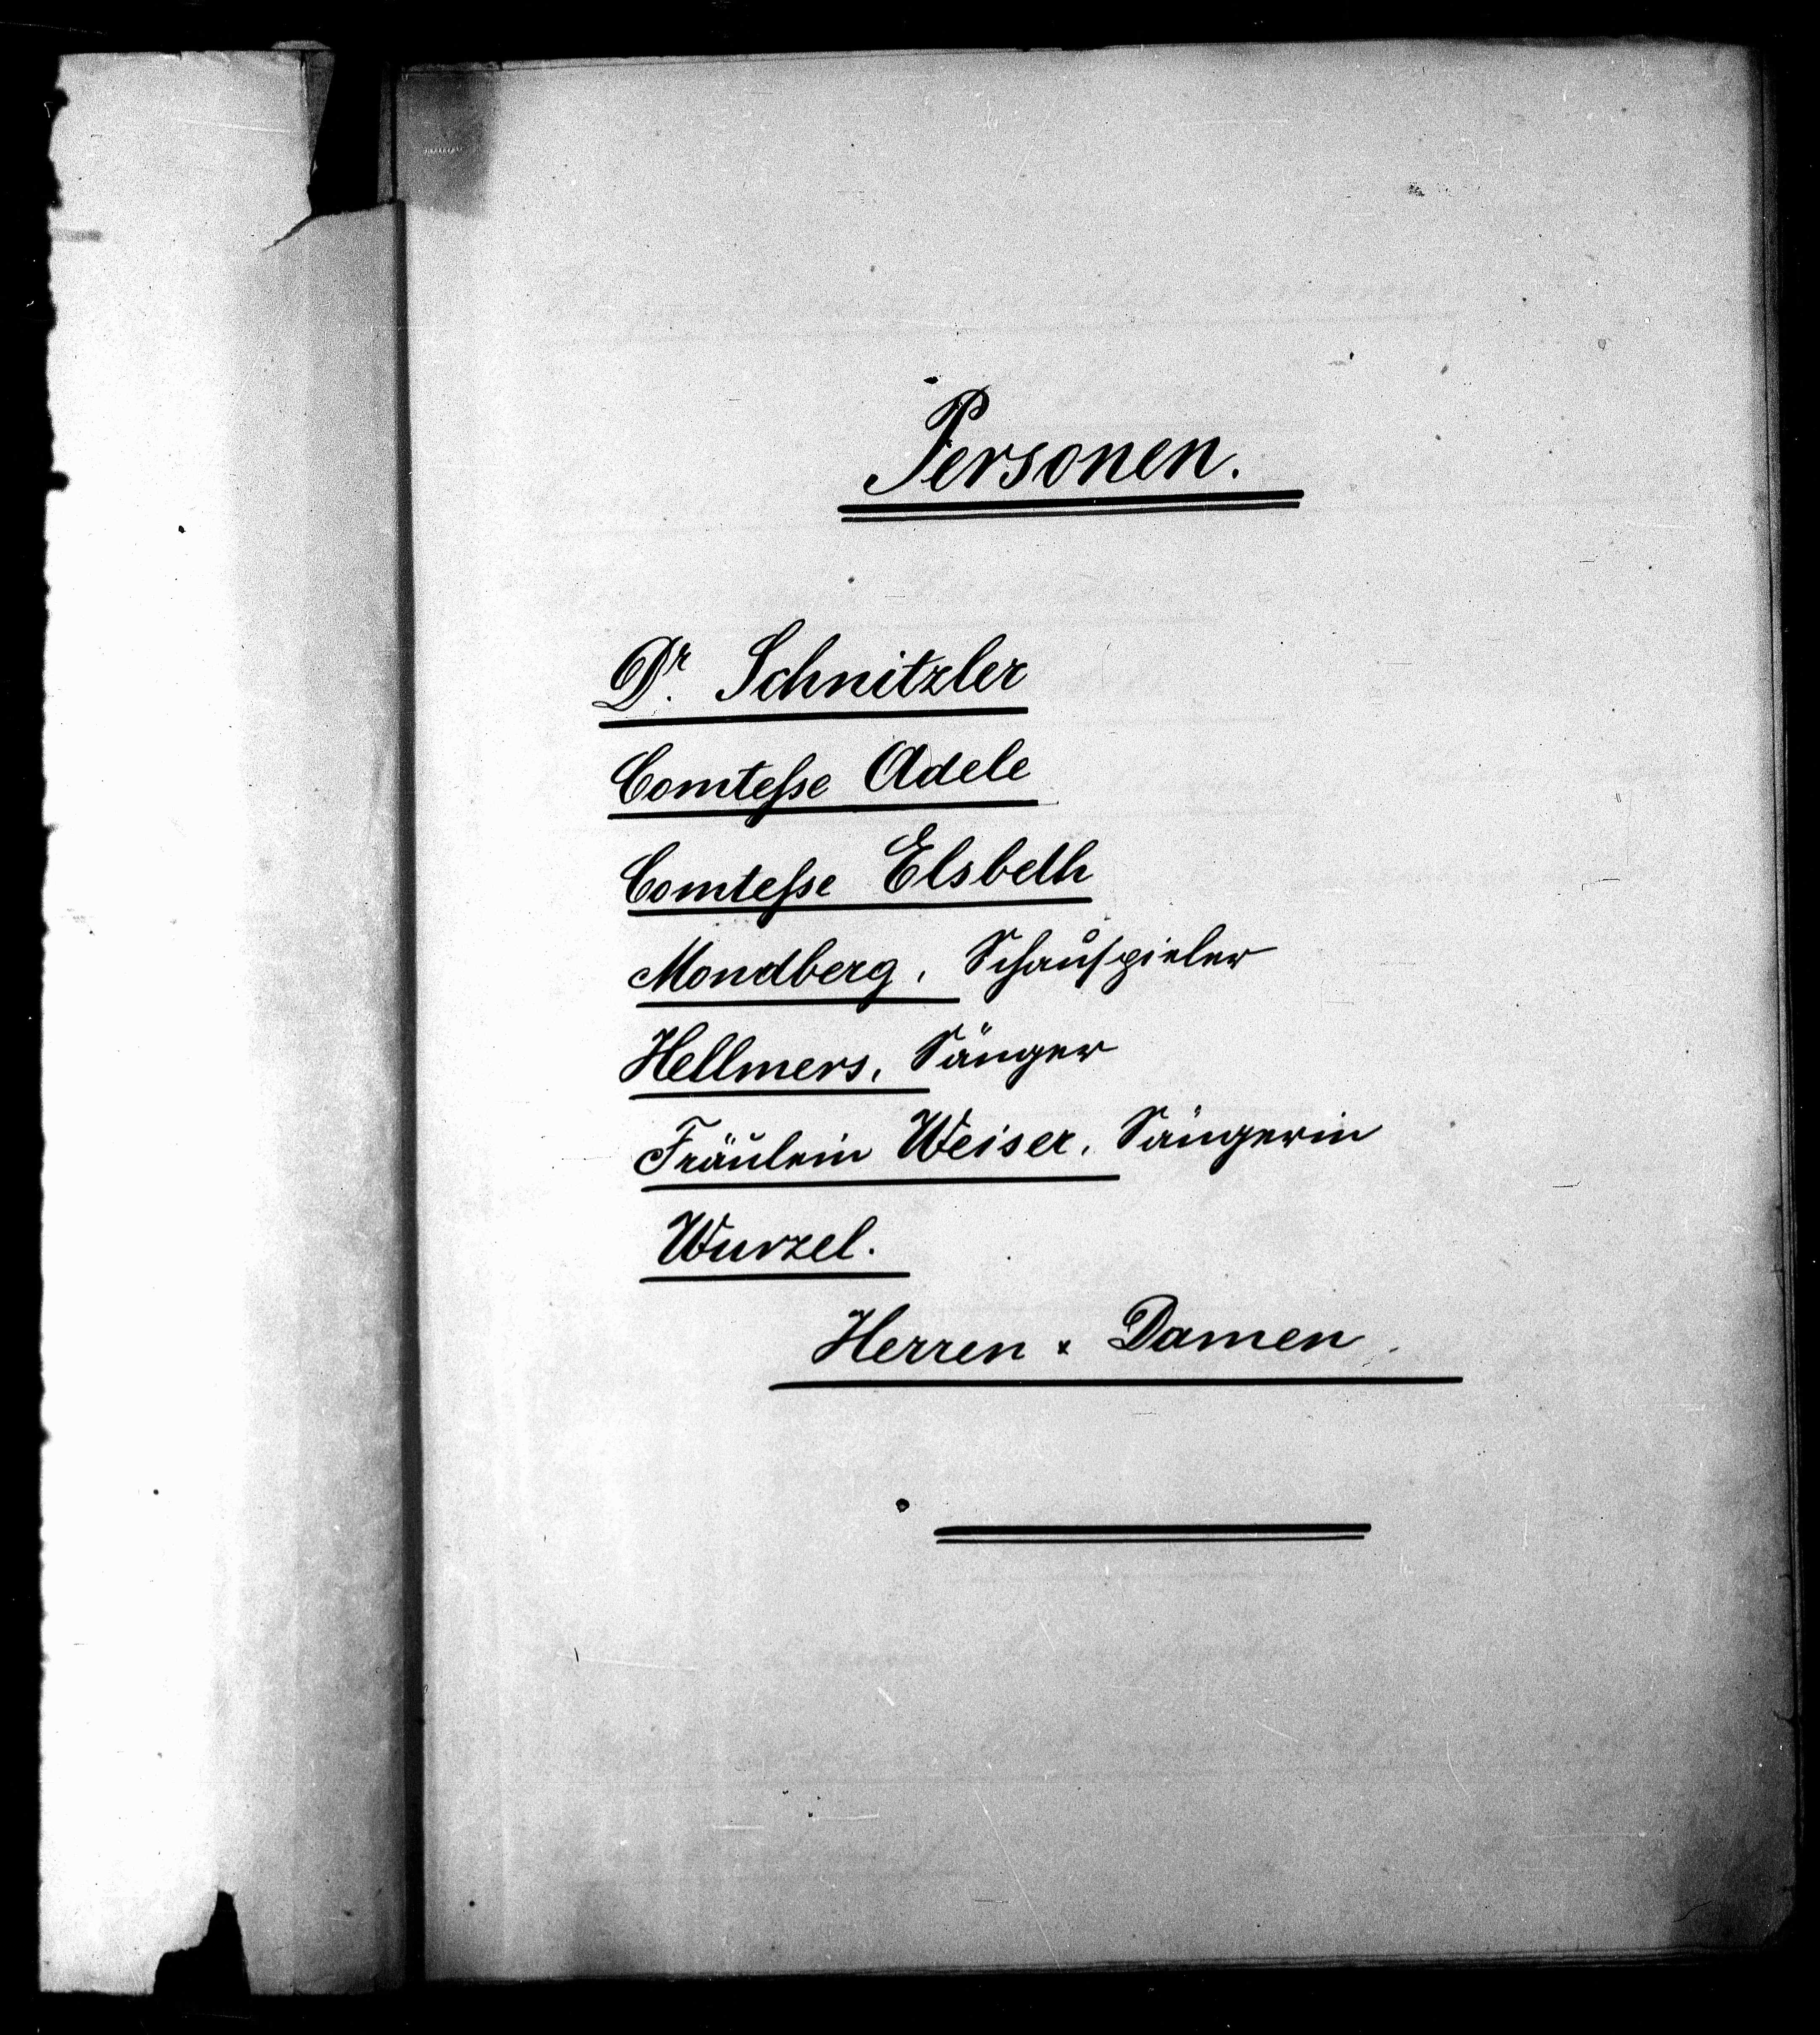 Personen.
Dr. Schnitzler
Comtesse Adele
Comtesse Elsbeth
Mondberg, Schauspieler
Hellmers, Sänger
Fräulein Weiser, Sängerin
Wurzel.
Herren & Damen